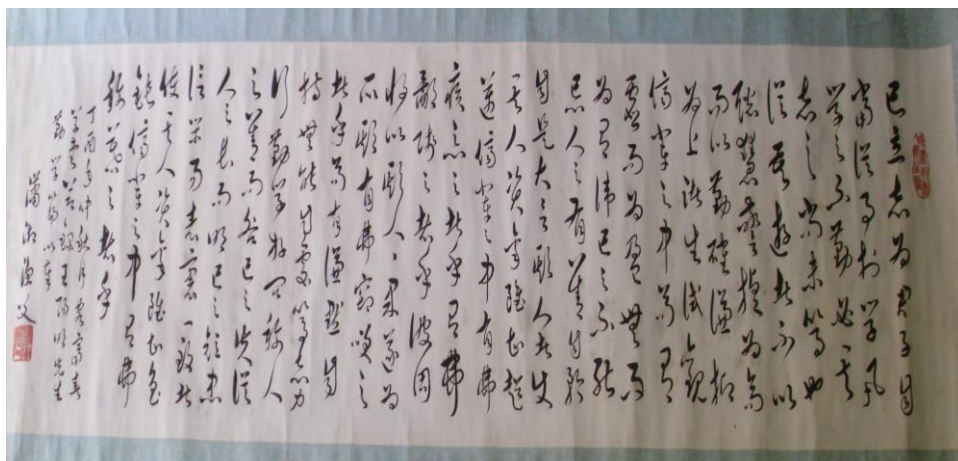 已立志為君子自
當從事於學凡
學之不勤必其
志之尚未篤也
從吾遊者不以
聰慧警捷為高
而以勤確謙抑
為上諸生試觀
儕輩之中苟有
虛而為盈無而
為有諱己之不能
忌人之有善自矜
自是大言欺人者使
其人資稟雖甚超
邁儕輩之中有弗
疾惡之者乎有弗
鄙賤之者乎彼固
將以欺人人果遂為
所欺有弗竊笑之
者乎苟有謙默自
持無能自處篤志力
行勤學好問稱人
之善而咎己之失從
人之長而明己之短忠
信樂易表裏一致者
使其人資稟雖甚魯
鈍儕輩之中有弗
稱慕之者乎
丁酉年仲秋月客富春
錄王陽明先生
勤學篇以
瀟湘漁父